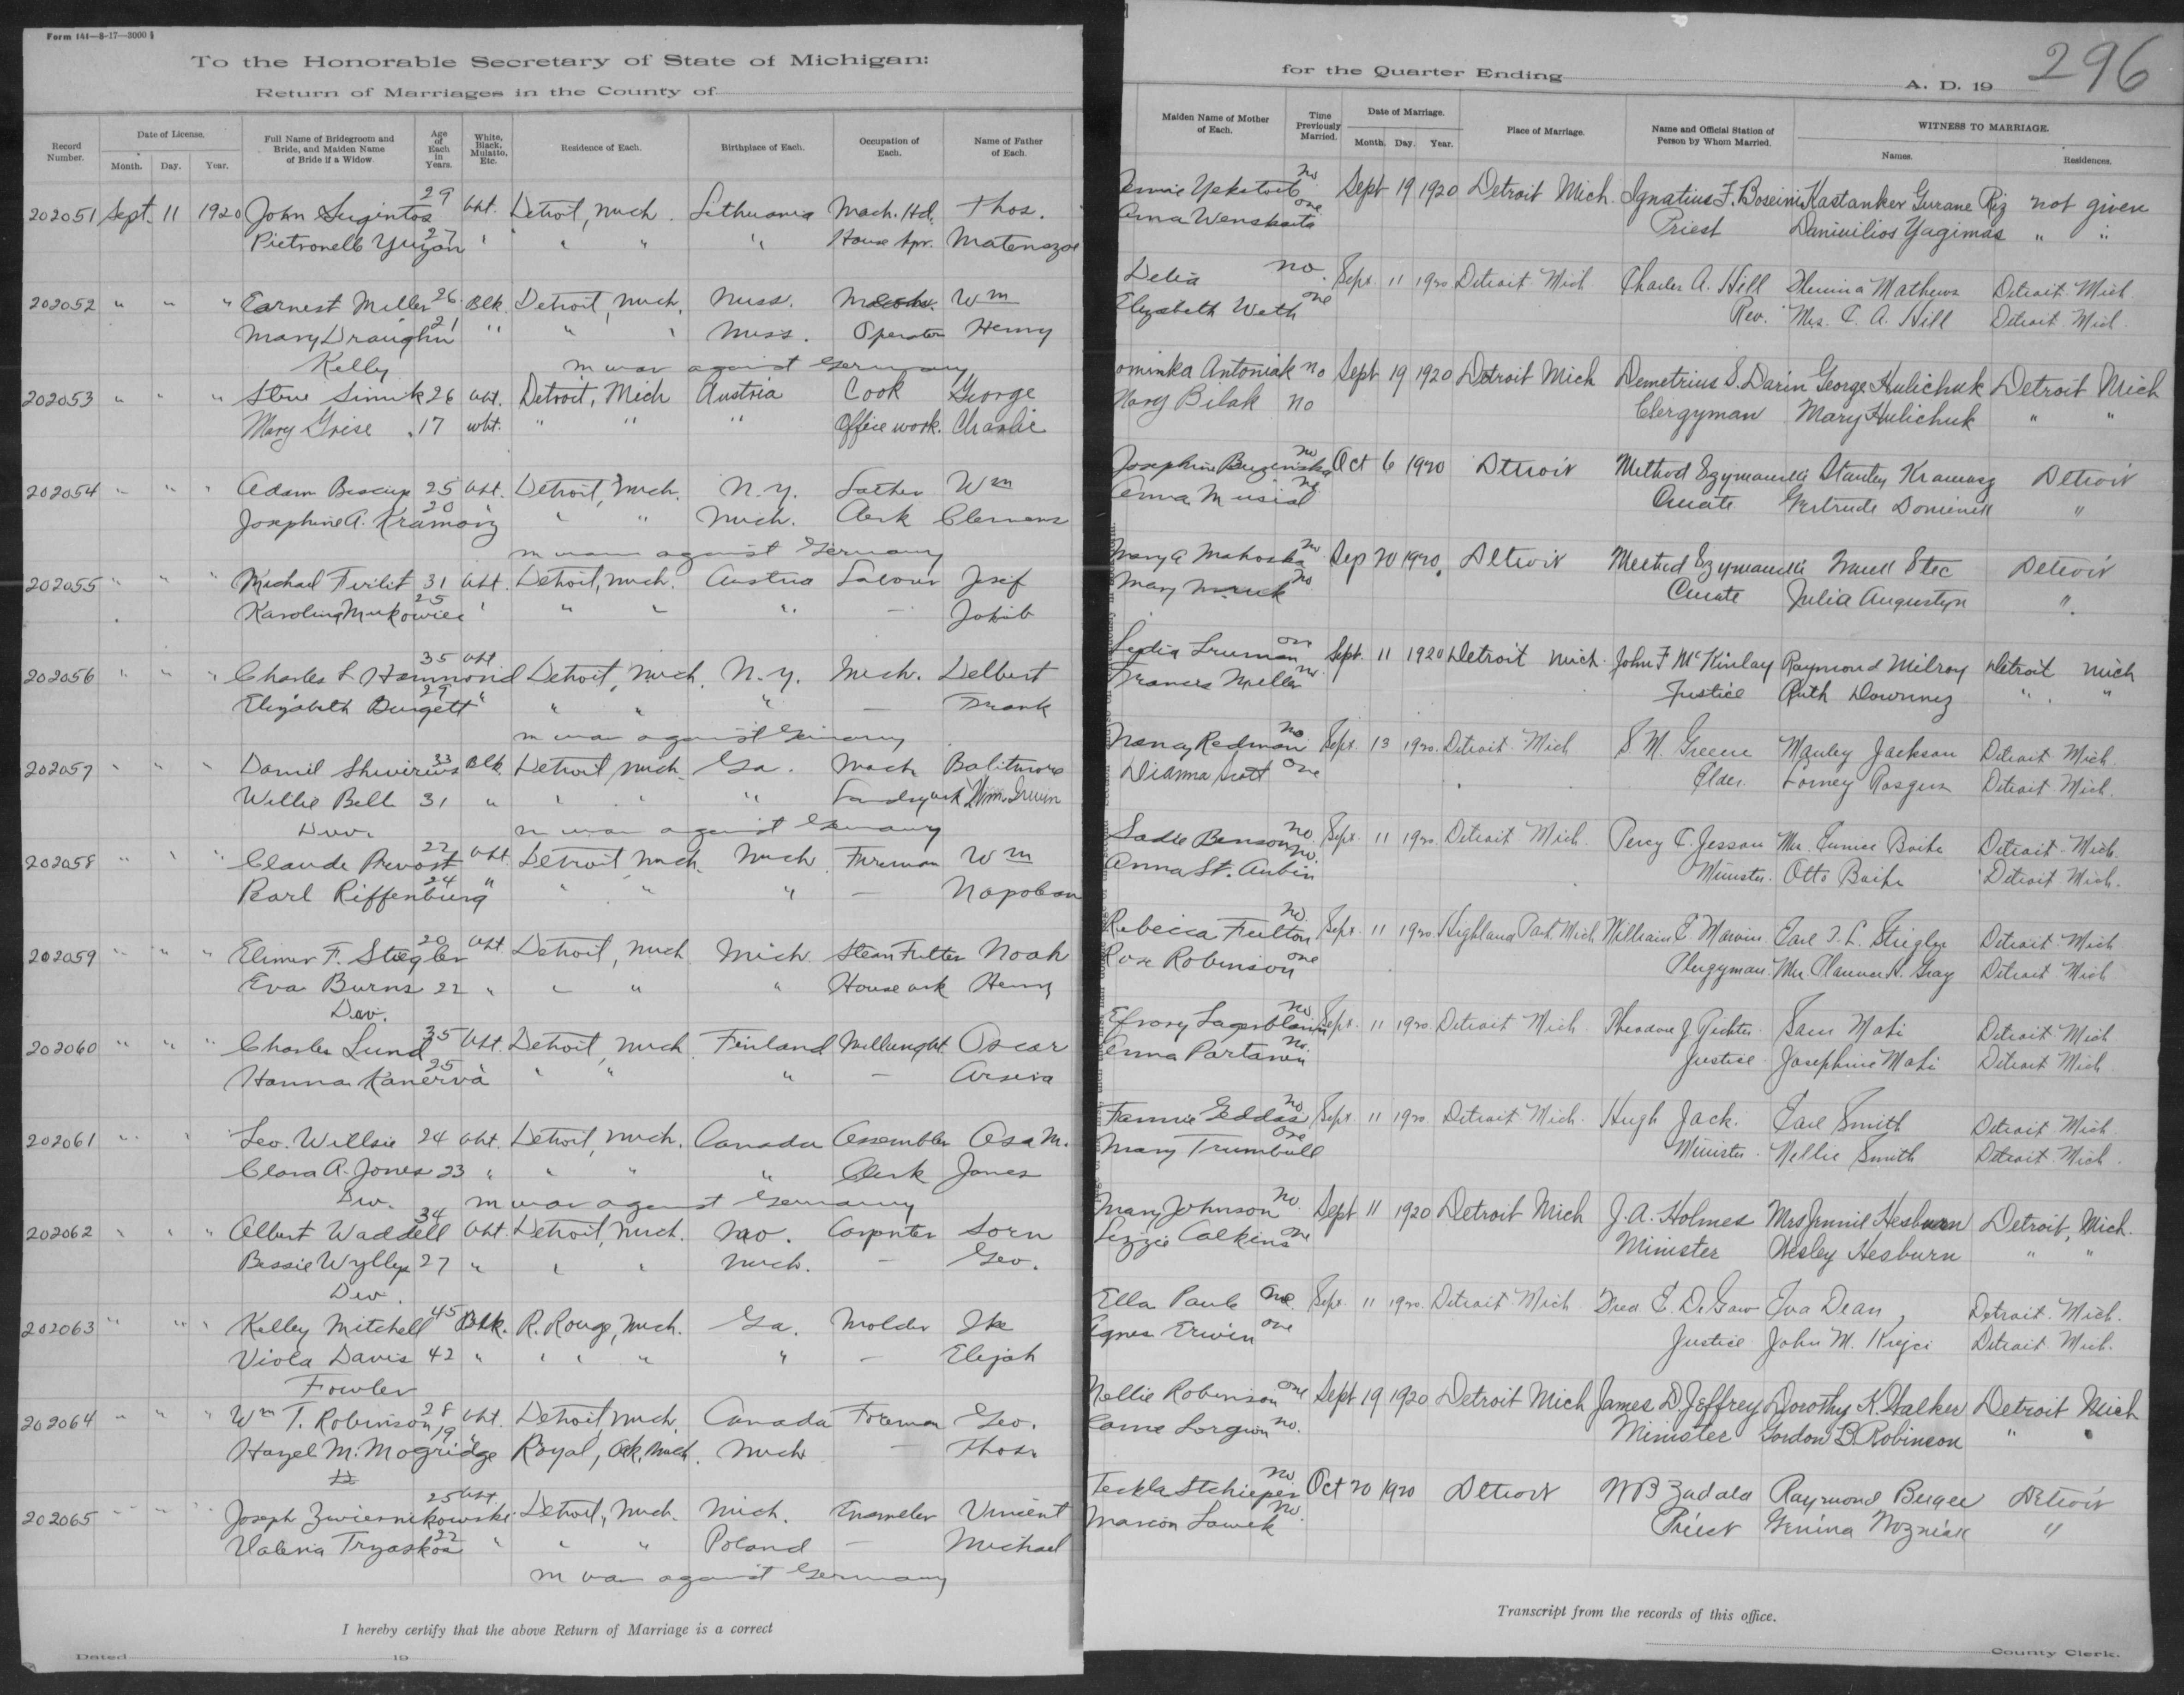 Form 141—8-17—3000 §
To the Honorable Secretary of State of Michigan:
Return of Marriages in the County of
for the Quarter Ending A. D. 19
296
Record Number. Date of License. Month. Day. Year. Full Name of Bridegroom and Bride, and Maiden Name of Bride if a Widow. Age of Each in Years. White, Black, Mulatto, Etc. Residence of Each. Birthplace of Each. Occupation of Each. Name of Father of Each.
Maiden Name of Mother of Each. Time Previously Married. Date of Marriage. Month. Day. Year. Place of Marriage. Name and Official Station of Person by Whom Married. WITNESS TO MARRIAGE. Names. Residences.
202051 Sept. 11 1920 John Sugintos 29 Wht. Detroit, Mich. Lithuania Mach. Hd. Thos. no Sept 19 1920 Detroit Mich. Ignatius F. Boseini Kastanker Gurane Riz not given
Pietronelle 27 " " " " House kpr. one Priest Daniuilios Yagimas " "
202052 " " " Earnest Miller 26 Blk. Detroit, Mich. Miss. Wm Delia no. Sept. 11 1920 Detroit Mich Charles A. Hill Mathews Detroit Mich.
Mary Draughn 21 " " " Miss. Operator Henry Elizabeth Weth one Rev. Mrs. C. A. Hill Detroit Mich.
Kelly m war against Germany
202053 " " " Steve Simik 26 Wht. Detroit, Mich Austria Cook George ominka Antoniak no Sept 19 1920 Detroit Mich Demetrius S. Darin George Hulichuk Detroit Mich
Mary Grise 17 wht. " " " Office work. Charlie Mary Bilak no Clergyman Mary Hulichuk " "
202054 " " " Adam Biscup 25 Wht. Detroit, Mich. N.Y. Lather Wm Josephine no Oct 6 1920 Detroit Method Szymanski Stanley Kramarz Detroit
Josephine A. Kramorz 20 " " " Mich. Clerk Clemens Anna Musial no Curate Gertrude Dominick "
m war against Germany
202055 " " " Michael Firlit 31 Wht. Detroit, Mich. Austria Labour Josef Mary A no Sep 20 1920 Detroit Method Szymanski Stec Detroit
Karolina Mukowiec 25 " " " " — Jakob Mary no Curate Julia Augustyn "
202056 " " " Charles L Hammond 35 Wht. Detroit, Mich. N.Y. Mech. Delbert Lydia Truman one Sept. 11 1920 Detroit Mich. John F McKinlay Raymond Milroy Detroit Mich
Elizabeth Burgett 29 " " " " — Frank Frances Miller no Justice Ruth Downing " "
m war against Germany
202057 " " " Daniel 33 Blk. Detroit, Mich. Ga. Mach Balitmore Nancy Redman no Sept. 13 1920 Detroit Mich S. M. Greene Manley Jackson Detroit Mich.
Willie Bell 31 " " " " Dianna Scott one Elder. Detroit Mich.
Div. m war against Germany
202058 " " " Claude Prevost 22 Wht. Detroit Mich. Mich Foreman Wm Sadie Benson no Sept. 11 1920 Detroit Mich. Percy C. Jesson Mrs. Eunice Detroit Mich.
Pearl Riffenburg 24 " " " " — Napolean Anna St. Aubin no. Minister. Otto Detroit Mich.
202059 " " " Elimer F. Stiegler 20 Wht. Detroit, Mich Mich Steam Fitter Noah Rebecca Fulton no. Sept. 11 1920 Highland Park Mich William E. Marvin Earl T. L. Stiegler Detroit Mich
Eva Burns 22 " " " " House wrk Henry Rose Robinson one Clergyman. Mrs Gray Detroit Mich
Div.
202060 " " " Charles Lund 35 Wht. Detroit, Mich Finland Millwright Oscar no Sept. 11 1920 Detroit Mich. Theodore J Richter Sam Maki Detroit Mich
Hanna Kanerva 25 " " " — Anna Partanen no. Justice Josephine Maki Detroit Mich.
202061 " " " Leo. Willsie 24 Wht. Detroit, Mich. Canada Assembler Asa M. Fannie Eddas no. Sept. 11 1920 Detroit Mich. Hugh Jack. Earl Smith Detroit Mich.
Clara A. Jones 23 " " " " Clerk James Mary Trumbull one Minister. Nellie Smith Detroit Mich.
Div. m war against Germany
202062 " " " Albert Waddell 34 Wht. Detroit, Mich. Mo. Carpnter Lorn Mary Johnson no Sept 11 1920 Detroit Mich J. A. Holmes Mrs Jennie Hesburn Detroit, Mich.
Bessie Wyllys 27 " " " Mich. — Geo. Lizzie Calkins one Minister Wesley Hesburn " "
Div.
202063 " " " Kelley Mitchell 45 Blk. R. Rouge, Mich. Ga. Molder Ike Ella Paule one Sept. 11 1920. Detroit Mich Fred E. DeGaw Eva Dean, Detroit Mich.
Viola Davis 42 " " " " " — Elijah Agnes Erwin one Justice John M. Krejci Detroit Mich.
Fowler
202064 " " " Wm T. Robinson 28 Wht. Detroit, Mich. Canada Foreman Geo. Nellie Robinson one Sept 19 1920 Detroit Mich James D Jeffrey Dorothy K. Walker Detroit Mich
Hazel M. Mogridge 19 " Royal, Oak, Mich. Mich — Thos. no. Minister Gordon B. Robinson " "
202065 " " " Joseph Zwiernikowski 25 Wht. Detroit, Mich. Mich. Enameler Vincent Teckla no Oct 20 1920 Detroit Raymond Detroit
Valeria Tryaskoa 22 " " " Poland — Michael Marion Lawek no. Priest Genina Wozniak "
m war against Germany
I hereby certify that the above Return of Marriage is a correct
Transcript from the records of this office.
Dated 19
County Clerk.